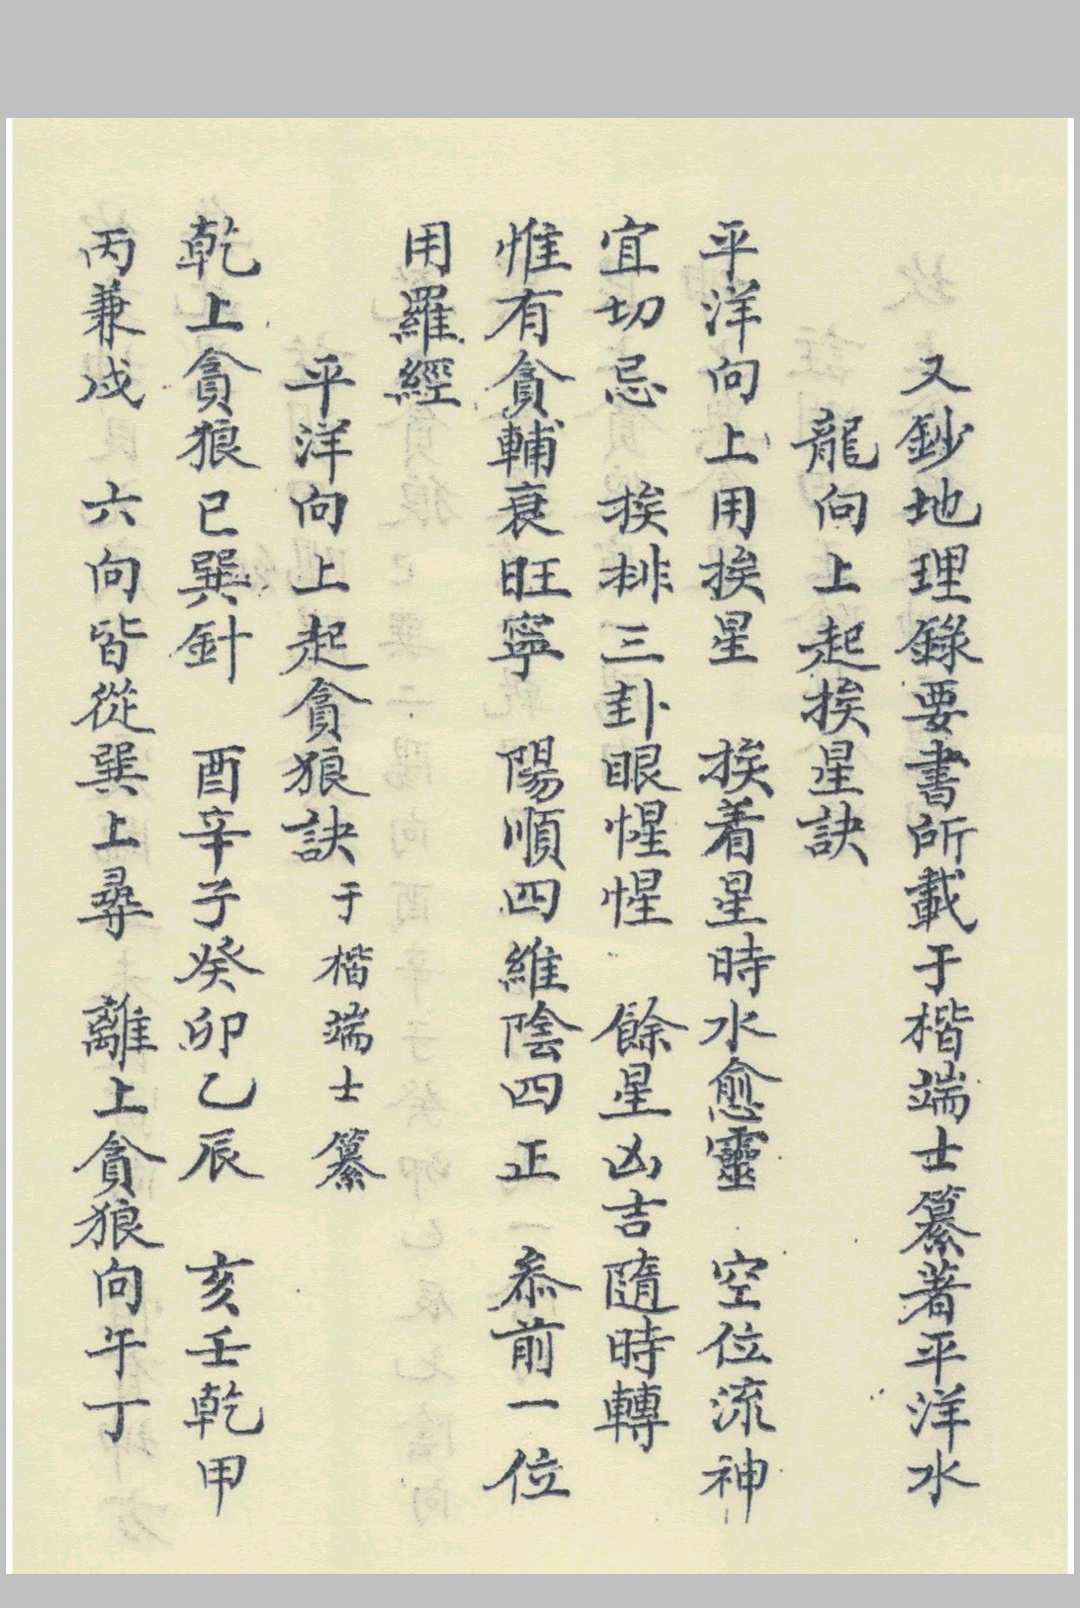 又鈔地理錄要書所載于楷端士纂著平洋水
龍向上起挨星訣
平洋向上用挨星　挨着星時水愈靈　空位流神
宜切忌　挨排三卦眼惺惺　餘星凶吉隨時轉
惟有貪輔衰旺寧　陽順四維陰四正　叅前一位
用羅經
平洋向上起貪狼訣于楷端士纂
乾上貪狼巳巽針　酉辛子癸卯乙辰　亥壬乾甲
丙兼戌　六向皆從巽上尋　離上貪狼向午丁